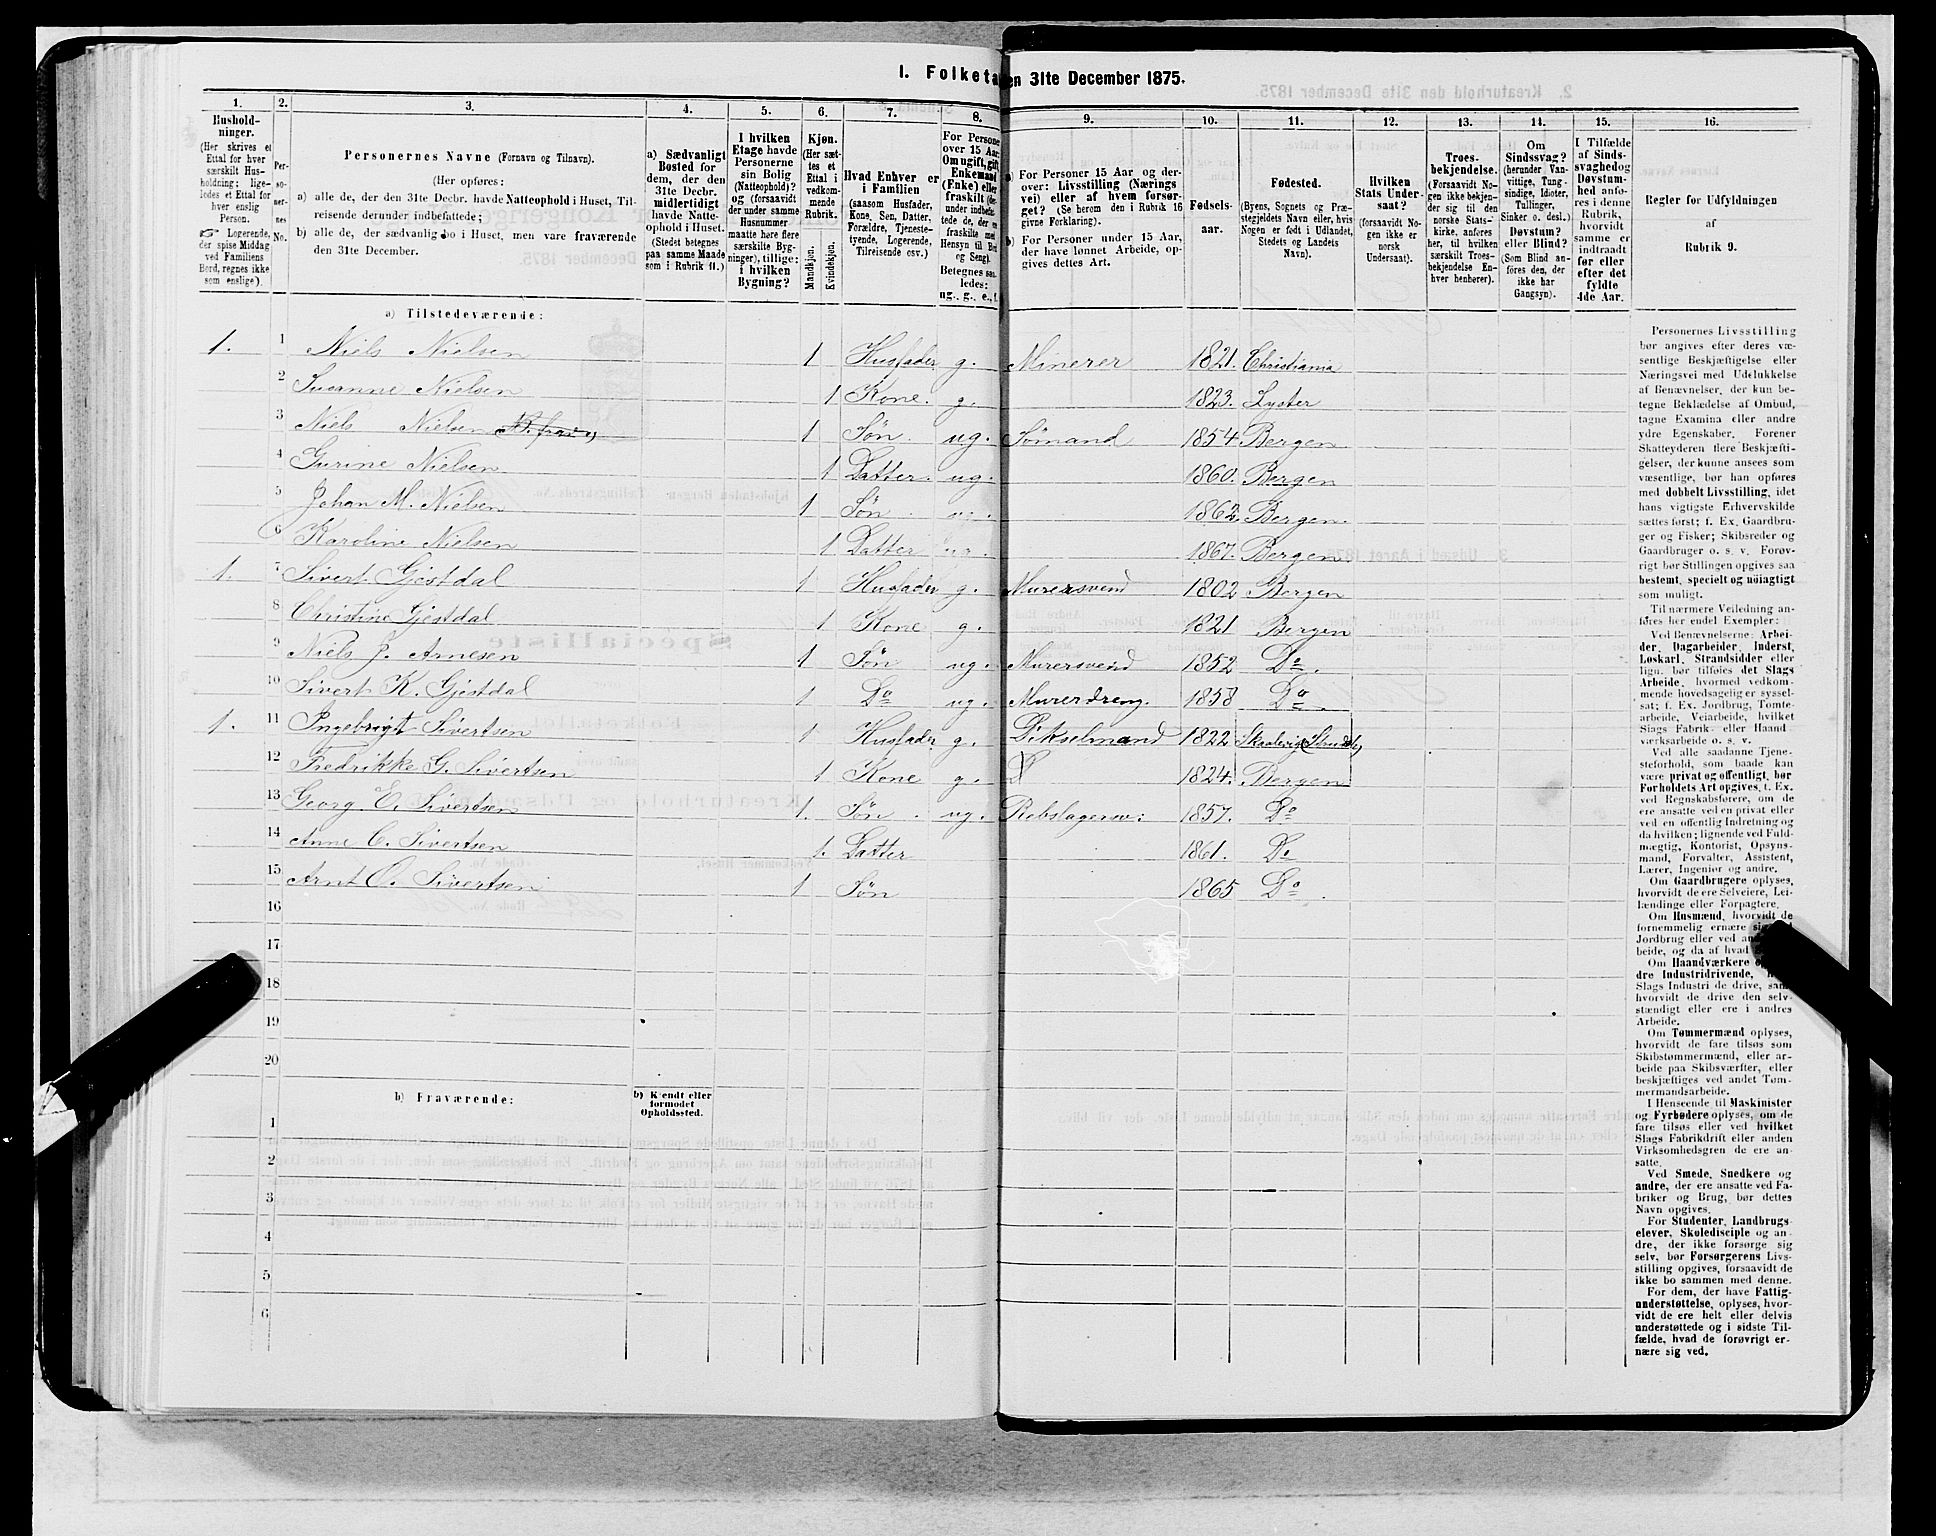 I. Folketa en 31te December 1875.
1. 2. 3. 4. 5. 6. 7. 8. 9. 10. 11. 12. 13. 14. 15. 16.
Hushold-
ninger.
(Her skrives et
Ettal for hver
særskilt Hus-
holdning; lige-
ledes et Ettal for
hver enslig
Person.
☞ Logerende,
der spise Middag
ved Familiens
Bord, regnes ikke
som enslige).
Per-
so-
ner-
nes
No.
Personernes Navne (Fornavn og Tilnavn).
(Her opføres:
a) alle de, der den 31te Decbr. havde Natteophold i Huset, Til-
reisende derunder indbefattede;
b) alle de, der sædvanlig bo i Huset, men vare fraværende
den 31te December.
a) Sædvanligt
Bosted for
dem, der den
31te Decbr.
midlertidigt
havde Natte-
ophold i Huset.
(Stedet betegnes
paa samme Maade
som i Rubrik 11.)
I hvilken
Etage havde
Personerne
sin Bolig
(Natteophold)?
og (forsaavidt
der under samme
Husnummer
maatte høre flere
særskilte Byg-
ninger), tillige:
i hvilken
Bygning?
Kjøn.
(Her sæt-
tes et
Ettal i
vedkom-
mende
Rubrik.
Mandkjøn.
Kvindekjøn.
Hvad Enhver er
i Familien
(saasom Husfader,
Kone, Søn, Datter,
Forældre, Tjeneste-
tyende, Logerende,
Tilreisende osv.)
For Persone
over 15 Aar:
Om ugift, gift,
Enkemand
(Enke) eller
fraskilt (der-
under indbefat-
tede de, der ere
fraskilte med
Hensyn til Bord
og Seng).
Betegnes saa-
ledes:
ug., g., e., f.
a) For Personer 15 Aar og der-
over: Livsstilling (Nærings
vei) eller af hvem forsør-
get? (Se herom den i Rubrik 16
givne Forklaring).
b) For Personer under 15 Aar,
der have lønnet Arbeide, op-
gives dettes Art.
Fødsels-
aar.
Fødested.
(Byens, Sognets og Præ-
stegjeldets Navn eller, hvis
Nogen er født i Udlandet,
Stedets og Landets
Navn).
Hvilken
Stats Under-
saat?
(forsaavidt No-
gen ikke er
norsk
Undersaat).
Troes-
bekjendelse.
(Forsaavidt No-
gen ikke bekjen-
der sig til den
norske Stats-
kirke, anføres
her, til hvilken
særskilt Troes-
bekjendelse En-
hver henhører).
Om
Sindssvag?
(herunder Van-
vittige, Tung-
sindige, Idioter,
Tullinger,
Sinker o. desl.)
Døvstum?
eller Blind?
(Som Blind an-
føres den, der
ikke har
Gangsyn).
I Tilfælde
af Sinds-
svaghed og
Døvstum-
hed anfø-
res i denne
Rubrik,
hvorvidt
samme er
indtraadt
før eller
efter det
fyldte
4de Aar.
Regler for Udfyldningen
af
Rubrik 9.
a) Tilstedeværende:
1. 1 Niels Nielsen 1 Husfader g. Minerer 1821. Christiania
2 Susanne Nielsen 1 Kone. g. 1823. Lyster
3 Niels Nielsen 1 Søn. ug. Sømand 1854. Bergen.
4 Gurine Nielsen 1 Datter. ug. 1860. Bergen
5 Johan M. Nielsen 1 Søn. 1862. Bergen.
6 Karoline Nielsen 1 Datter 1867. Bergen
1. 7 Sivert Gjestdal 1 Husfader g. Murersvend 1802 Bergen
8 Christine Gjestdal 1 Kone g. 1821 Bergen
9 Niels J. Arnesen 1 Søn ug. Murersvend 1852 Do.
10 Sivert K. Gjestdal 1 Do ug. Murerdreng. 1858 Do.
1. 11 Ingebrigt Sivertsen 1 Husfader g. Dikselmand 1822 Skaalevig
12 Fredrikke G. Sivertsen 1 Kone g. 1824. Bergen
13 Georg E. Sivertsen 1. Søn. ug. Rebslagersv: 1857. Do
14 Anne C. Sivertsen 1. Datter 1861. Do
15 Arnt O. Sivertsen 1 Søn 1865 Do.
16
17
18
19
20
b) Fraværende:
b) Kjendt eller
formodet
Opholdssted.
1
2
3
4
5
6
Personernes Livsstilling
bør angives efter deres væ-
sentlige Beskjæftigelse eller
Næringsvei med Udelukkelse
af Benævnelser, der kun be-
tegne Beklædelse af Ombud,
tagne Examina eller andre
ydre Egenskaber. Forener
Skatteyderen flere Beskjæfti-
gelser, der kunne ansees som
væsentlige, bør han opføres
med dobbelt Livsstilling, idet
hans vigtigste Erhvervskilde
sættes først; f. Ex. Gaardbru-
ger og Fisker; Skibsreder og
Gaardbruger o. s. v. Forøv-
rigt bør Stillingen opgives saa
bestemt, specielt og nøiagtigt
som muligt.
Til nærmere Veiledning an-
føres her endel Exempler:
Ved Benævnelserne: Arbei-
der, Dagarbeider, Inderst,
Løskarl, Strandsidder eller
lign. bør tilføies det Slags
Arbeide, hvormed vedkom-
mende hovedsagelig er syssel-
sat; f. Ex. Jordbrug, Tomte-
arbeide, Veiarbeide, hvilket
Slags Fabrik- eller Haand
værksarbeide o. s. v.
Ved alle saadanne Tjene-
steforhold, som baade kan
være privat og offentligt, bør
Forholdets Art opgives, f. Ex.
ved Regnskabsførere, om de
ere ansatte ved en privat eller
ved en offentlig Indretning og
da hvilken; lignende ved Fuld-
mægtig, Kontorist, Opsyns-
mand, Forvalter, Assistent,
Lærer, Ingeniør og andre.
Om Gaardbrugere oplyses,
hvorvidt de ere Selveiere, Lei-
lændinge eller Forpagtere.
Om Husmænd, hvorvidt de
fornemmelig ernære si
Jordbrug eller ved an
beide, og da af hvad
Om Haandværkere o
dre Industridrivende,
Slags Industri de drive, sam
hvorvidt de drive den selv-
stændigt eller ere i andres
Arbeide.
Om Tømmermænd oplyses,
hvorvidt de fare tilsøs som
Skibstømmermænd, eller ar-
beide paa Skibsværfter, eller
beskjæftiges ved andet Tøm-
mermandsarbeide.
I Henseende til Maskinister
og Fyrbødere oplyses, om de
fare tilsøs eller ved hvilket
Slags Fabrikdrift eller anden
Virksomhedsgren de ere an-
satte.
Ved Smede, Snedkere og
andre, der ere ansatte ved Fa-
briker og Brug, bør dettes
Navn opgives.
For Studenter, Landbrugs-
elever, Skoledisciple og an-
dre, der ikke forsørge sig
selv, bør Forsørgerens Livs-
stilling opgives, forsaavidt de
ikke bo sammen med denne.
For dem, der have Fattig-
understøttelse, oplyses, hvor-
vidt de ere helt eller delvis
understøttede og i sidste Til-
fælde, hvad de forøvrigt er-
nære sig ved.